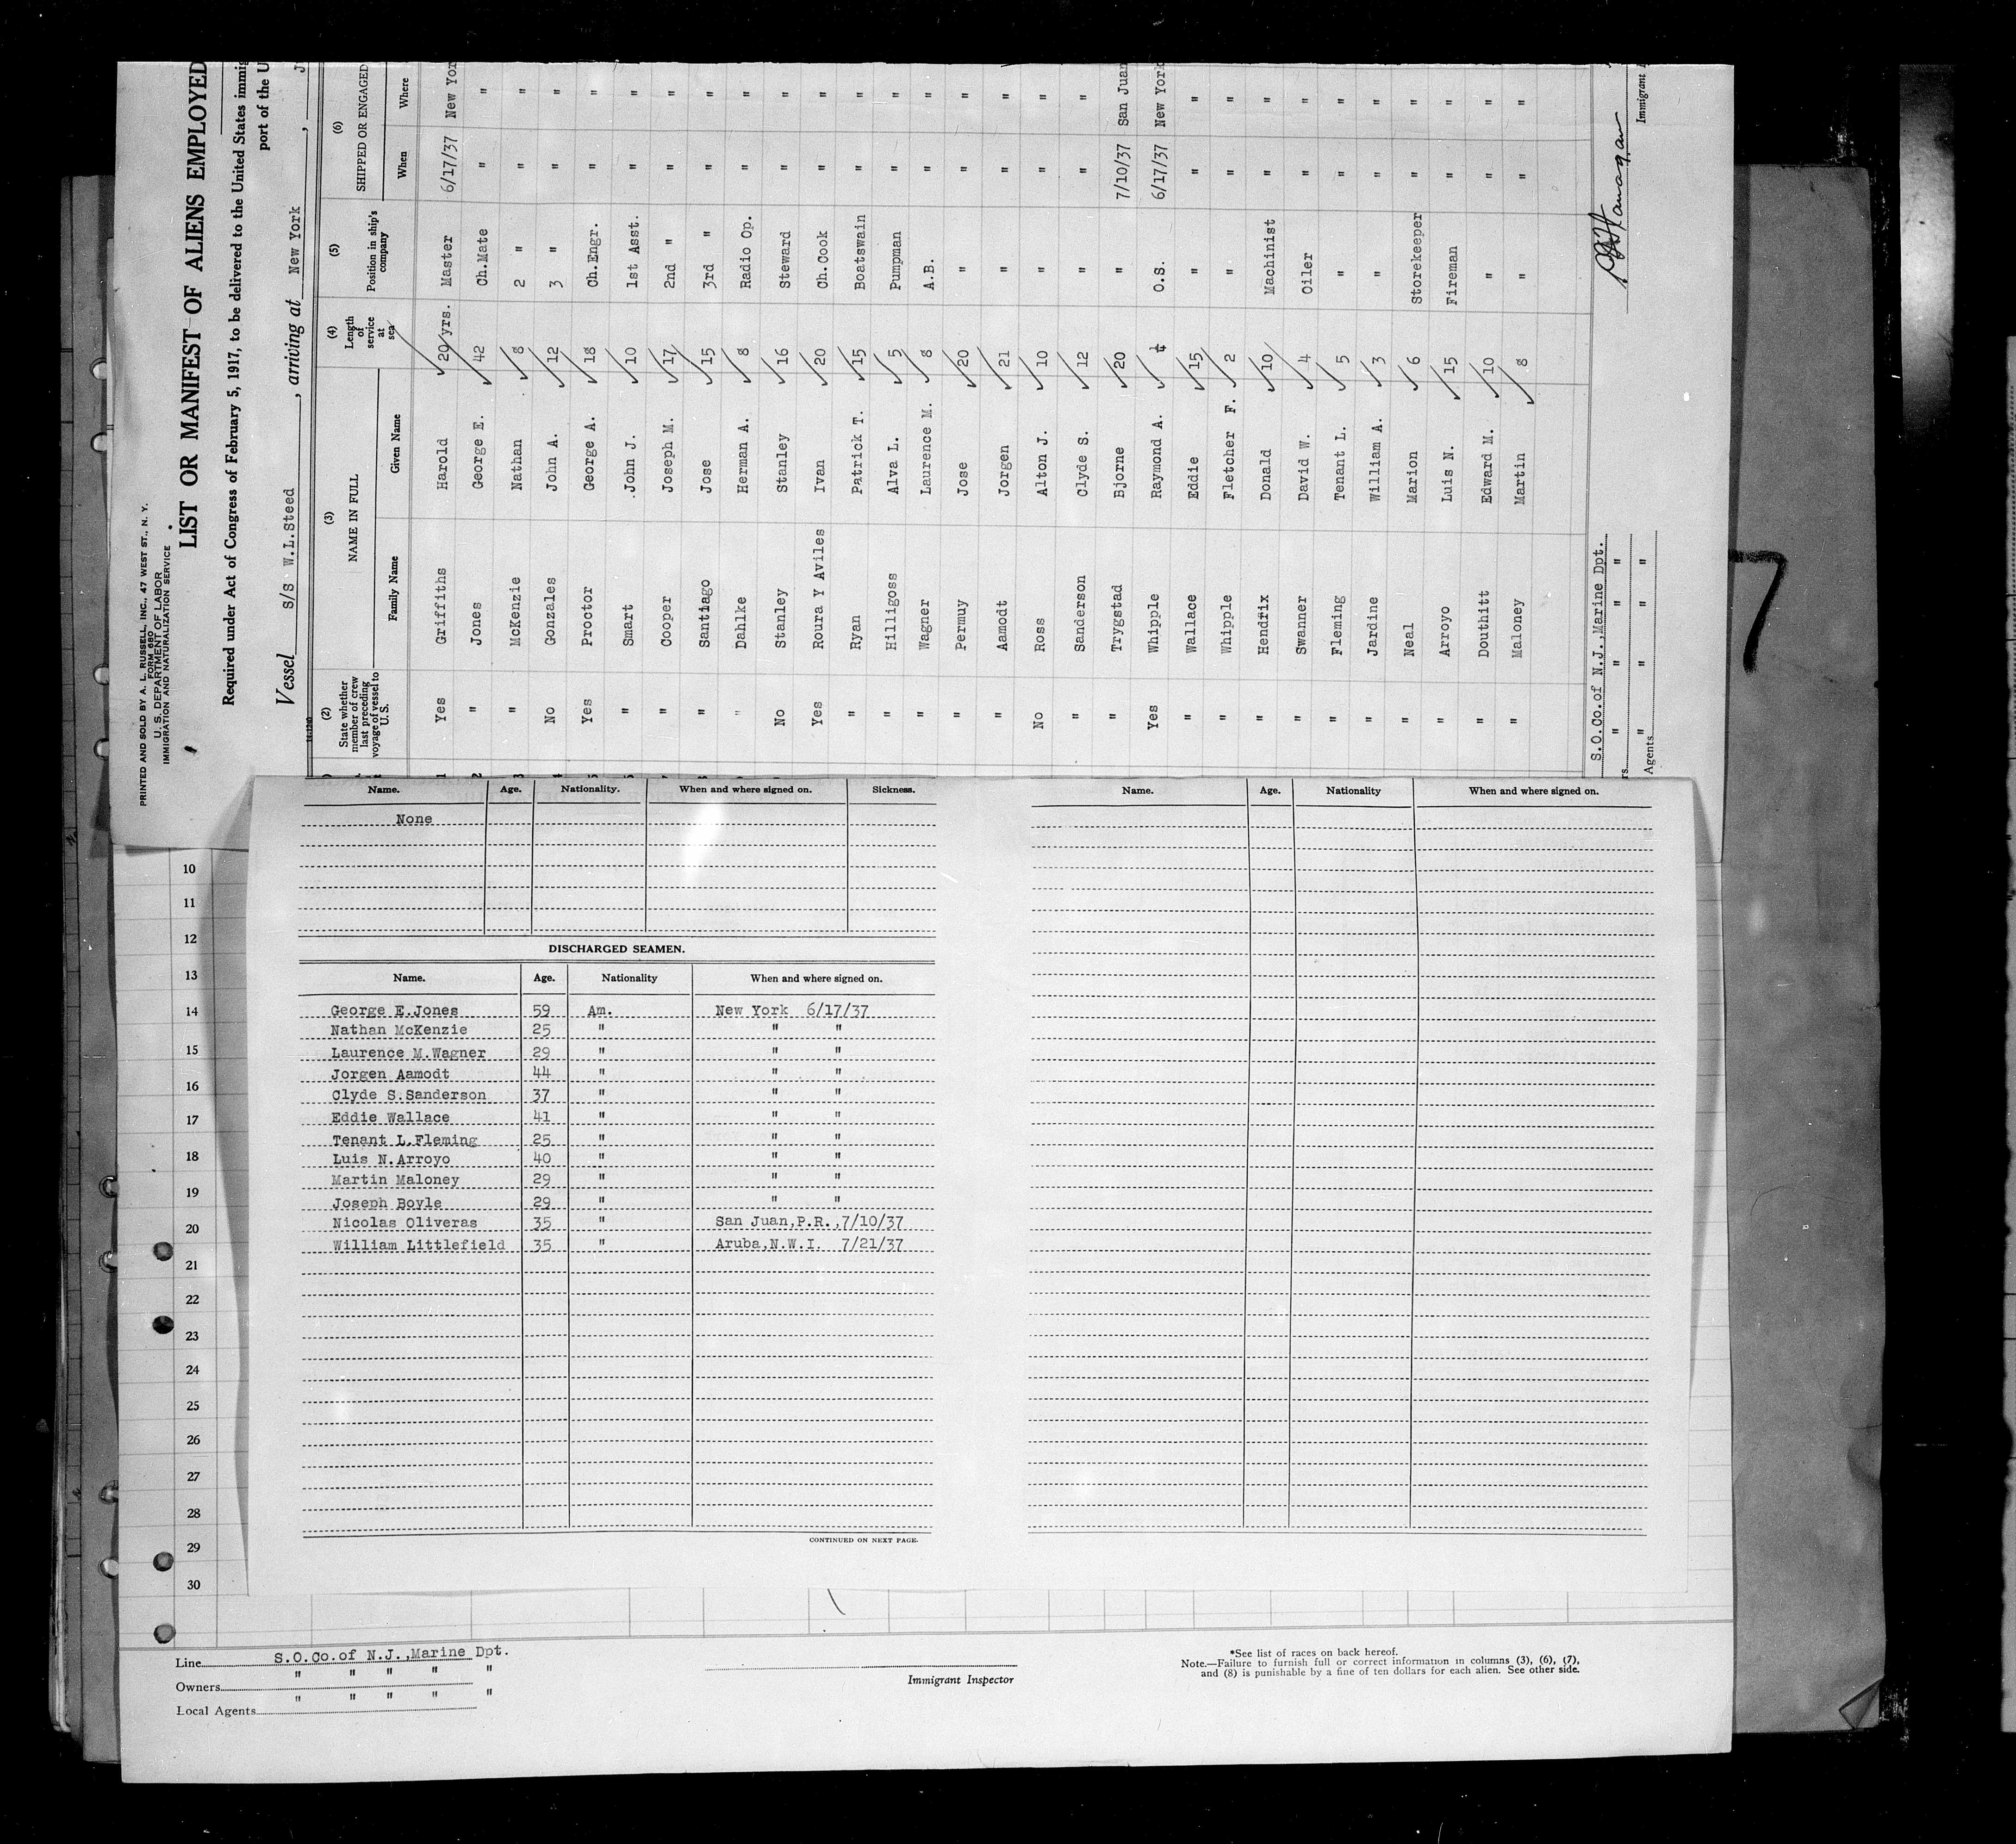 PRINTED AND SOLD BY A. L. RUSSELL, INC., 47 WEST ST., N. Y.
FORM 680
U. S. DEPARTMENT OF LABOR
IMMIGRATION AND NATURALIZATION SERVICE
LIST OR MANIFEST OF ALIENS EMPLOYED
Required under Act of Congress of February 5, 1917, to be delivered to the United States immig
port of the U
Vessel S/S W.L.Steed, arriving at New York, J
(2) (3) (4) (5) (6)
State whether member of crew last preceding voyage of vessel to U. S. NAME IN FULL Length of service at sea Position in ship's company SHIPPED OR ENGAGED
Family Name Given Name When Where
1 Yes Griffiths Harold 20 yrs. Master 6/17/37 New Yor
2 " Jones George E. 42 Ch.Mate " "
3 " McKenzie Nathan 8 2 " " "
4 No Gonzales John A. 12 3 " " "
5 Yes Proctor George A. 18 Ch.Engr. " "
" Smart John J. 10 1st Asst. " "
" Cooper Joseph M. 17 2nd " " "
" Santiago Jose 15 3rd " " "
" Dahlke Herman A. 8 Radio Op. " "
No Stanley Stanley 16 Steward " "
Yes Roura Y Aviles Ivan 20 Ch.Cook " "
" Ryan Patrick T. 15 Boatswain " "
" Hilligoss Alva L. 5 Pumpman " "
" Wagner Laurence M. 8 A.B. " "
" Permuy Jose 20 " " "
" Aamodt Jorgen 21 " " "
No Ross Alton J. 10 " " "
" Sanderson Clyde S. 12 " " "
" Trygstad Bjorne 20 " 7/10/37 San Juan
Yes Whipple Raymond A. O.S. 6/17/37 New York
" Wallace Eddie 15 " " "
" Whipple Fletcher F. 2 " " "
" Hendrix Donald 10 Machinist " "
" Swanner David W. 4 Oiler " "
" Fleming Tenant L. 5 " " "
" Jardine William A. 3 " " "
" Neal Marion 6 Storekeeper " "
" Arroyo Luis N. 15 Fireman " "
" Douthitt Edward M. 10 " " "
" Maloney Martin 8 " " "
S.O.Co.of N.J.,Marine Dpt.
" " " "
Agents " " " "
Immigrant
7
Name. Age. Nationality. When and where signed on. Sickness.
None
DISCHARGED SEAMEN.
Name. Age. Nationality When and where signed on.
George E.Jones 59 Am. New York 6/17/37
Nathan McKenzie 25 " " "
Laurence M.Wagner 29 " " "
Jorgen Aamodt 44 " " "
Clyde S.Sanderson 37 " " "
Eddie Wallace 41 " " "
Tenant L.Fleming 25 " " "
Luis N.Arroyo 40 " " "
Martin Maloney 29 " " "
Joseph Boyle 29 " " "
Nicolas Oliveras 35 " San Juan,P.R.,7/10/37
William Littlefield 35 " Aruba,N.W.I. 7/21/37
CONTINUED ON NEXT PAGE.
Name. Age. Nationality When and where signed on.
10
11
12
13
14
15
16
17
18
19
20
21
22
23
24
25
26
27
28
29
30
Line S.O.Co.of N.J.,Marine Dpt.
Owners " " " " "
Local Agents " " " " "
Immigrant Inspector
*See list of races on back hereof.
Note.—Failure to furnish full or correct information in columns (3), (6), (7),
and (8) is punishable by a fine of ten dollars for each alien. See other side.